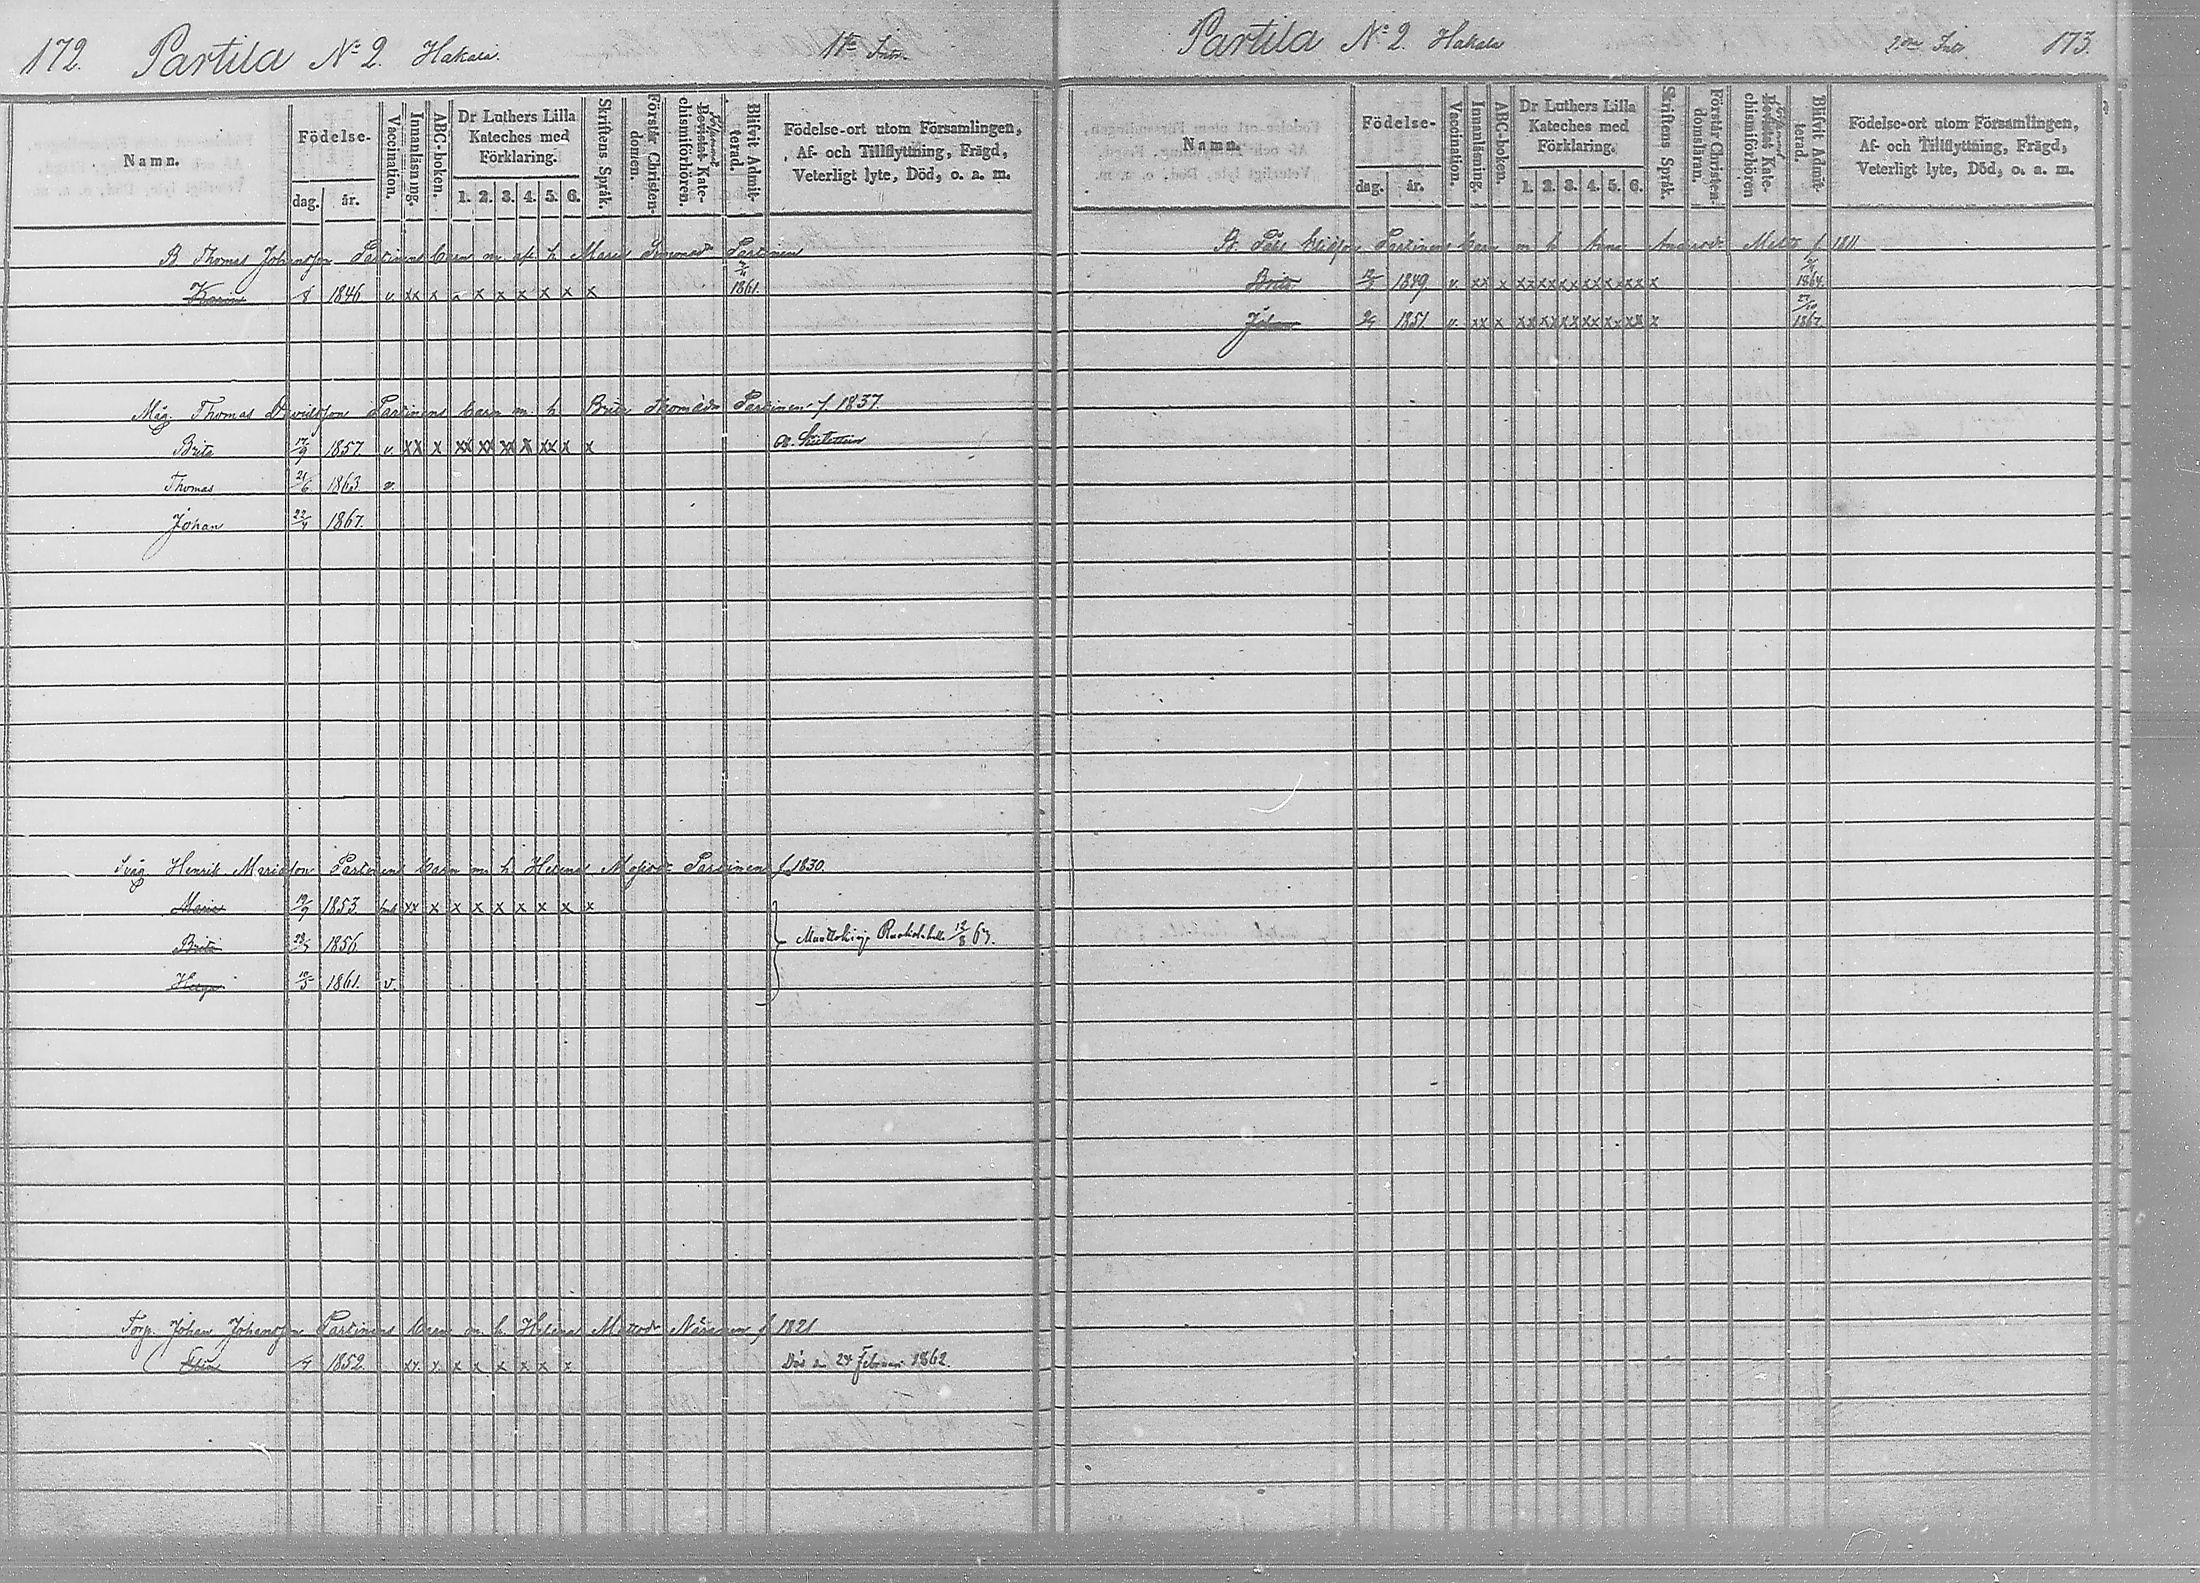 172. Partila No 2. Hakala. 1ste Intr.
Namn. Födelse- dag. år. Vaccination. Innanläsning. ABC-boken. Dr Luthers Lilla Kateches med Förklaring. 1. 2. 3. 4. 5. 6. Skriftens Språk. Förstår Christendomen. Bevistat Katechismiförhören. Blifvit Admitterad. Födelse-ort utom Församlingen, Af- och Tillflyttning, Frägd, Veterligt lyte, Död, o. a. m.
B. Thomas Johansson Partinens barn m. afl. h. Maria Simonsdr Partinen
1846 v xx x x x x x x x x 1861.
Måg. Thomas Davidsson Partinens barn m. h. Brita Thomasdr Partinen f. 1837.
Brita 17/9 1857. v. xx x xx xx xx x xx x x
Thomas 21/6 1863 v.
Johan 22/4 1867.
Svåg Henrik Mariasson Partinens barn m. h. Helena Partinen f. 1830.
Maria 19/9 1853. xx x x x x x x x x
Brita 1856 12/8 67.
1861. v.
Torp. Johan Johansson Partinens barn m. h. Helena Mattsdr Näränen f. 1821
1852. xx. x. x x x x x x Död den 24 Februari 1862.
Partila No 2. Hakala 2dra Intr 173.
Namn. Födelse- dag. år. Vaccination. Innanläsning. ABC-boken. Dr Luthers Lilla Kateches med Förklaring. 1. 2. 3. 4. 5. 6. Skriftens Språk. Förstår Christendomsläran. Bevistat Katechismiförhören Blifvit Admitterad. Födelse-ort utom Församlingen, Af- och Tillflyttning, Frägd, Veterligt lyte, Död, o. a. m.
Ericsson Partinens barn m. h. Anna Andersdr f. 1811
Brita 1849 v. xx x xx xx xx xx xx xx x 1864.
Johan 1851. v. xx x xx xx xx xx xx xx x 1867.